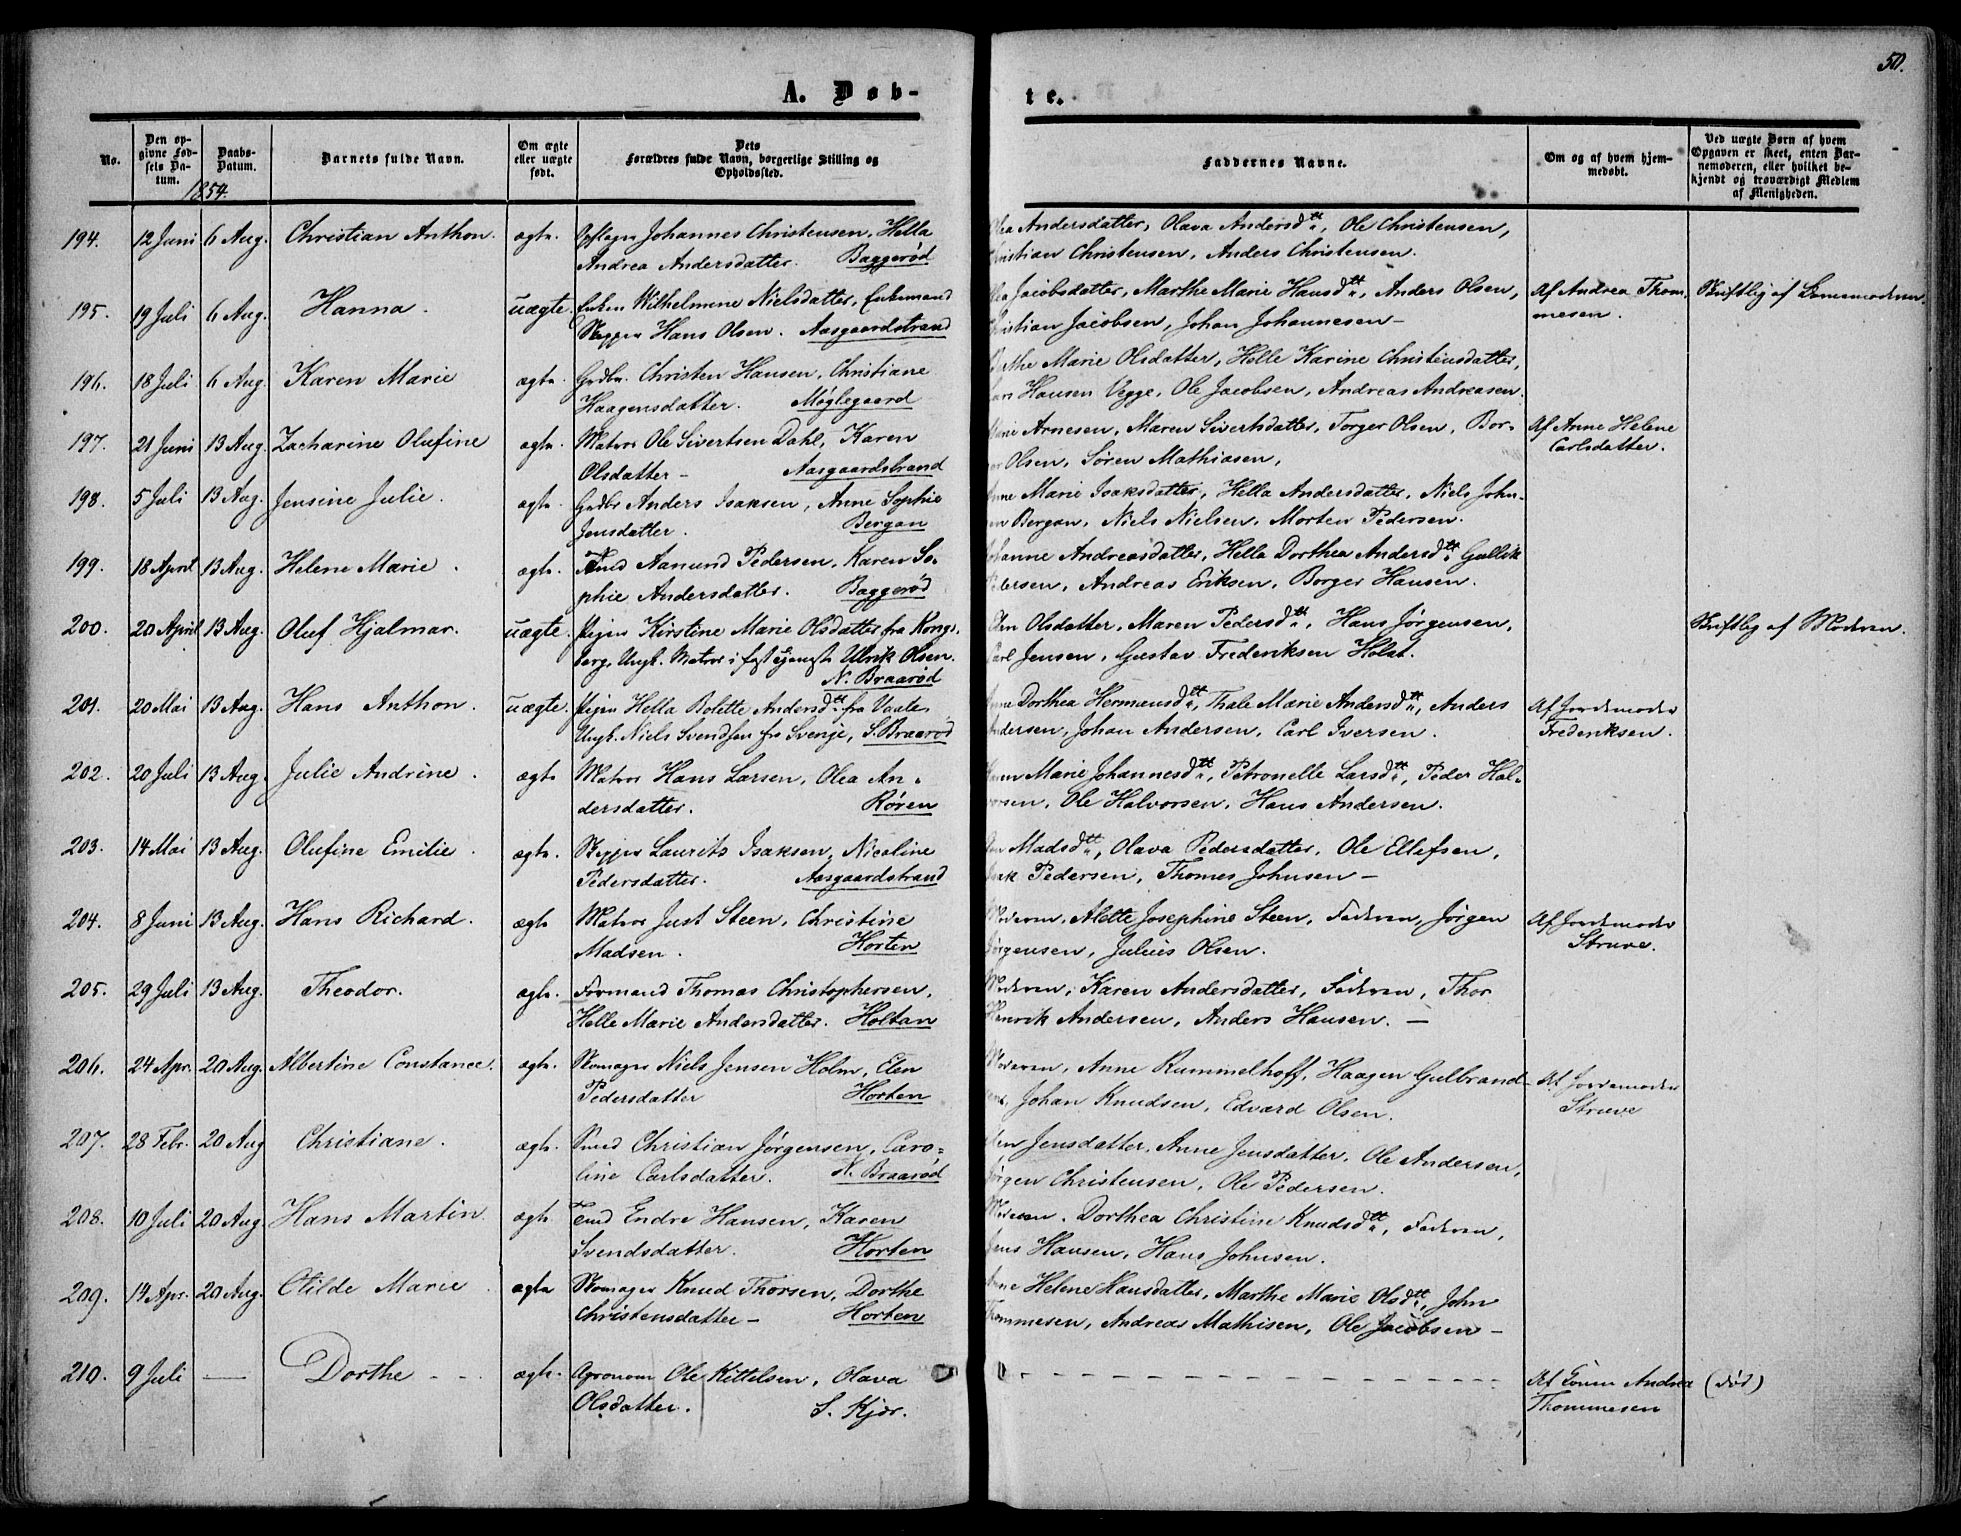 50.
A. Døb-
te.
No.
Den op-
givne Fød-
sels Da-
tum.
Daabs-
Datum.
Barnets fulde Navn.
Om ægte
eller uægte
født.
Dets
Forældres fulde Navn, borgerlige Stilling og
Opholdssted.
Faddernes Navne.
Om og af hvem hjem-
medøbt.
Ved uægte Børn af hvem
Opgaven er skeet, enten Bar-
nemoderen, eller hvilket be-
kjendt og troværdigt Medlem
af Menigheden.
1854.
194. 12 Juni 6 Aug. Christian Anthon. ægte. Johannes Christensen, Hella
Andrea Andersdatter. Baggerød
Andersdatter, Olava Andersdtt., Ole Christensen,
Christensen, Anders Christensen.
195. 19 Juli 6 Aug. Hanna. uægte. Enken Wilhelmene Nielsdatter, Enkemand
Skipper Hans Olsen. Aasgaardstrand
Jacobsdatter, Marthe Marie Hansdtt., Anders Olsen,
Jacobsen, Johan Johannesen —
Af Andrea Thom
mesen.
Skriftlig af
196. 18 Juli 6 Aug. Karen Marie ægte. Grdbr. Christen Hansen, Christiane
Haagensdatter. Møglegaard
Marie Olsdatter, Helle Karine Christensdatter,
Hansen Vegge, Ole Jacobsen, Andreas Andreasen.
197. 21 Juni 13 Aug. Zacharine Olufine ægte. Matros Ole Sivertsen Dahl, Karen
Olsdatter — Aasgaardstrand
Arnesen, Maren Sivertsdatter, Torger Olsen, Bor-
Olsen, Søren Mathiasen,
Af Anne Helene
Carlsdatter.
198. 5 Juli 13 Aug. Jensine Julie. ægte. Grdbr Anders Isaksen, Anne Sophie
Jensdatter. Bergan
Marie Isaksdatter, Hella Andersdatter, Niels John-
Bergan, Niels Nielsen, Morten Pedersen.
199. 18 April 13 Aug. Helene Marie. ægte. Aanund Pedersen, Karen So-
phie Andersdatter. Baggerød
Johanne Andreasdatter, Hella Dorthea Andersdtt. Gullik
Pedersen, Andreas Eriksen, Borger Hansen.
200. 20 April 13 Aug. Oluf Hjalmar. uægte. Pigen Kirstine Marie Olsdatter fra Kongs-
berg, Ungk. Matros i fast Tjeneste Ulrik Olsen.
N. Braarød
Olsdatter, Maren Pedersdtt., Hans Jørgensen,
Carl Jensen, Gustav Frederiksen Holst.
Skriftlig af Moderen.
201. 20 Mai 13 Aug. Hans Anthon. uægte. Pigen Hella Bolette Andersdtt. fra Vaale
Ungk. Niels Svendsen fra Sverige, S. Braarød
Dorthea Hermansdtt., Thale Marie Andersdtt., Anders
Andersen, Johan Andersen, Carl Iversen.
Af Jordemoder
Frederiksen.
202. 20 Juli 13 Aug. Julie Andrine. ægte Matros Hans Larsen, Olea An-
dersdatter. Røren
Marie Johannesdtt., Petronelle Larsdtt., Peder Hal-
vorsen, Ole Halvorsen, Hans Andersen.
203. 14 Mai 13 Aug. Olufine Emilie. ægte. Skipper Laurits Isaksen, Nicoline
Pedersdatter. Aasgaardstrand
Madsdtt., Olava Pedersdatter, Ole Ellefsen,
Isak Pedersen, Thomes Johnsen —
204. 8 Juni 13 Aug. Hans Richard. ægte Matros Just Steen, Christine
Madsen. Horten
Moderen, Alette Josephine Steen, Faderen, Jørgen
Jørgensen, Julius Olsen.
Af Jordemoder
Struve.
205. 29 Juli 13 Aug. Theodor. ægte. Formand Thomas Christophersen,
Helle Marie Andersdatter. Holtan
Moderen, Karen Andersdatter, Faderen, Thor
Henrik Andersen, Anders Hansen. —
206. 24 Apr. 20 Aug. Albertine Constance. ægte. Skomager Niels Jensen Holm, Elen
Pedersdatter Horten
Moderen, Anne Rummelhoff, Haagen Gulbrand-
Johan Knudsen, Edvard Olsen.
Af Jordemoder
Struve
207. 28 Febr. 20 Aug Christiane. ægte. Smed Christian Jørgensen, Caro-
line Carlsdatter. N. Braarød
Jensdatter, Anne Jensdatter, Ole Andersen,
Jørgen Christensen, Ole Pedersen.
208. 10 Juli 20 Aug Hans Martin. ægte Endre Hansen, Karen
Svendsdatter. Horten
Moderen, Dorthea Christine Knudsdtt., Faderen,
Jens Hansen, Hans Johnsen.
209. 14 Apr. 20 Aug. Olilde Marie. ægte Skomager Knud Thorsen, Dorthe
Christensdatter — Horten
Anne Helene Hansdatter, Marthe Marie Olsdtt., John
Thommesen, Andreas Mathisen, Ole Jacobsen —
210. 9 Juli — Dorthe ægte. Agronom Ole Kittelsen, Olava
Olsdatter. S. Kjær.
Af Andrea
Thommesen
(død)